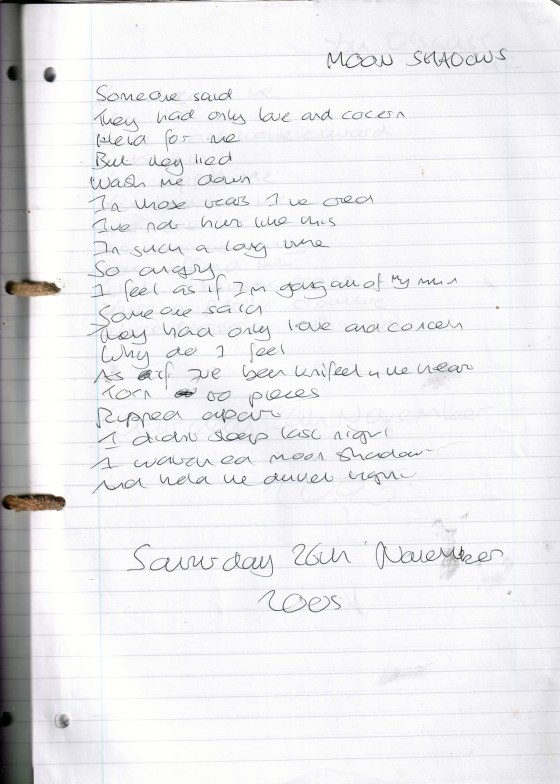 MOON SHADOWS
Someone said
They had only love and cocern
Held for me
But they lied
Wash me down
In those tears I've cried
I've not hurt like this
In such a long time
So angry
I feel as if I'm going out of my mind
Someone said
They had only love and concern
Why do I feel
As if I've been knifed in the heart
Torn to pieces
Ripped apart
I didnt sleep last night
I watched moon shadows
And held the
Saturday 26th November
2005